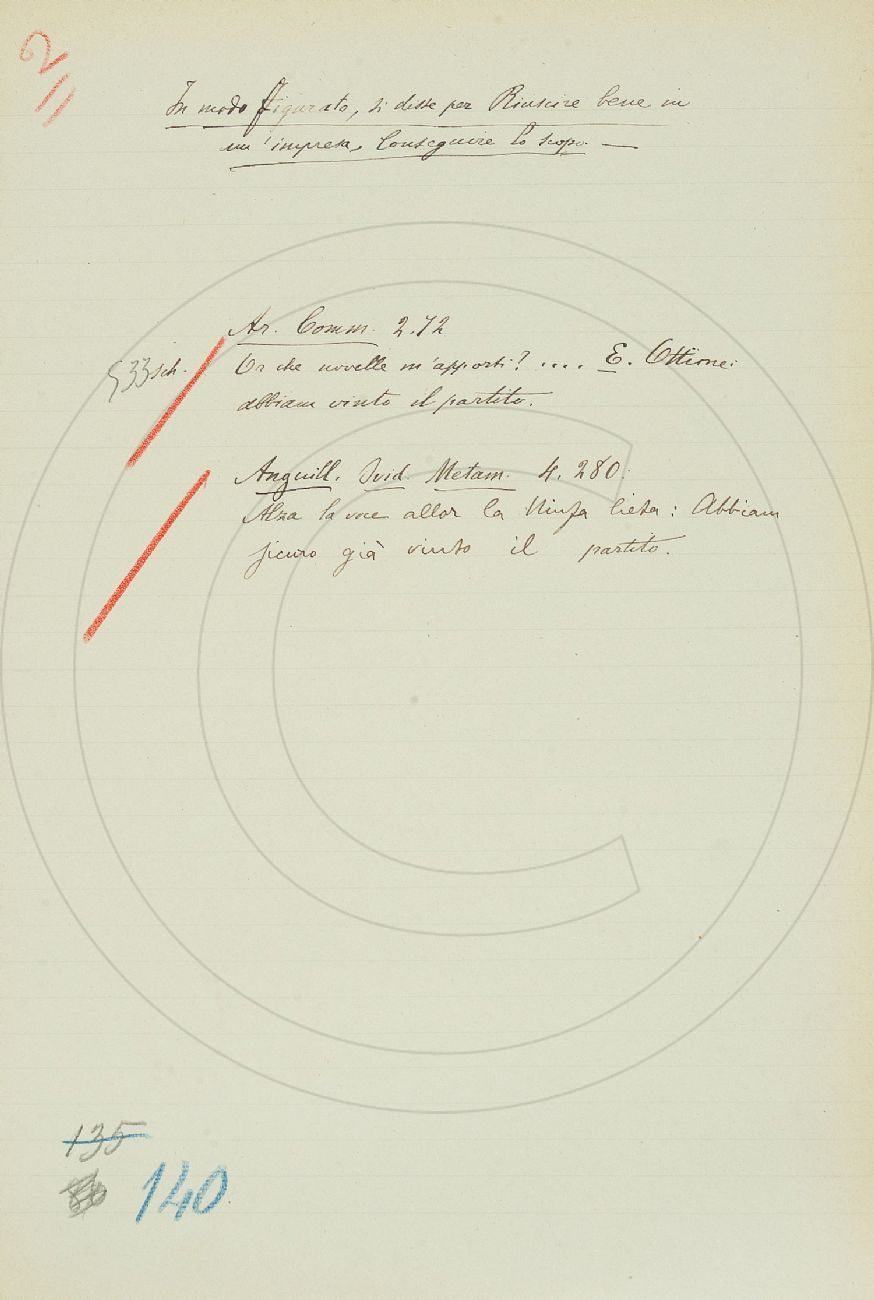 In modo figurato, si disse per Riuscire bene in
un'impresa, Conseguire lo scopo. —
Ar. Comm. 2.72
§ 33 sch.
Or che novelle m'apporti? .... E. Ottime:
abbiam vinto il partito.
Anguill. Ovid. Metam. 4. 280:
Alza la voce allor la Ninfa lieta: Abbiam
sicuro già vinto il partito.
135
140